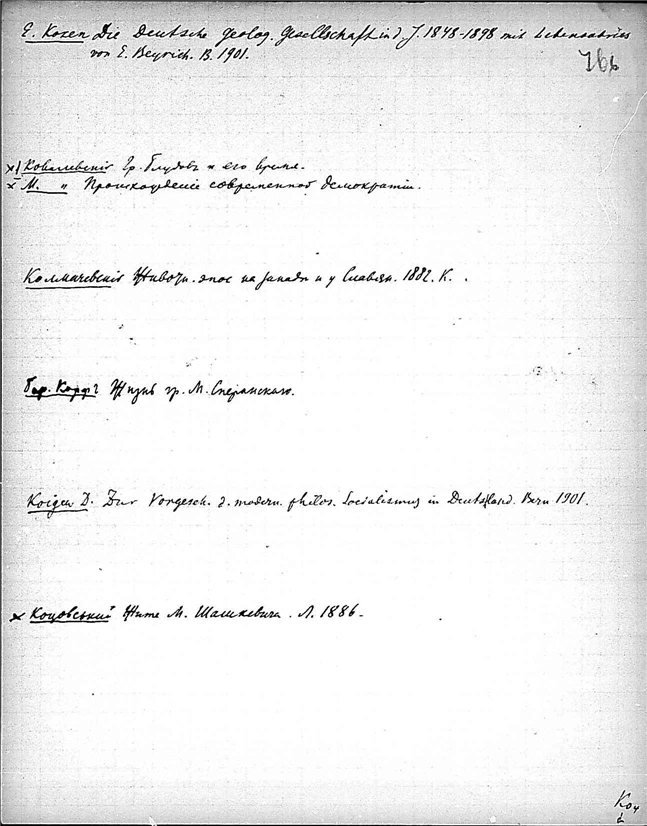 E. Koken Die Deutsche geolog. Gesellschaft in d. J. 1848-1898 mit Lebensabriss
von E. Beyrich. B. 1901.
76b
× Ковалевскій Гр. Блудовъ и его время.
× М. " Происхожденіе современной демократіи.
Колмачевскій Животн. эпос на западѣ и у Славян. 1882. К.
бар. Корфъ Жизнь гр. М. Сперанскаго.
Koigen D. Zur Vorgesch. d. modern. philos. Socialismus in Deutschland. Bern 1901.
× Коцовський Житє М. Шашкевича. Л. 1886.
Коч